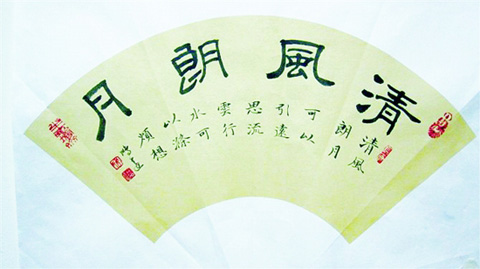 清風朗月
清風
朗月
可以
引遠
思流
雲行
水可
以滌
煩想